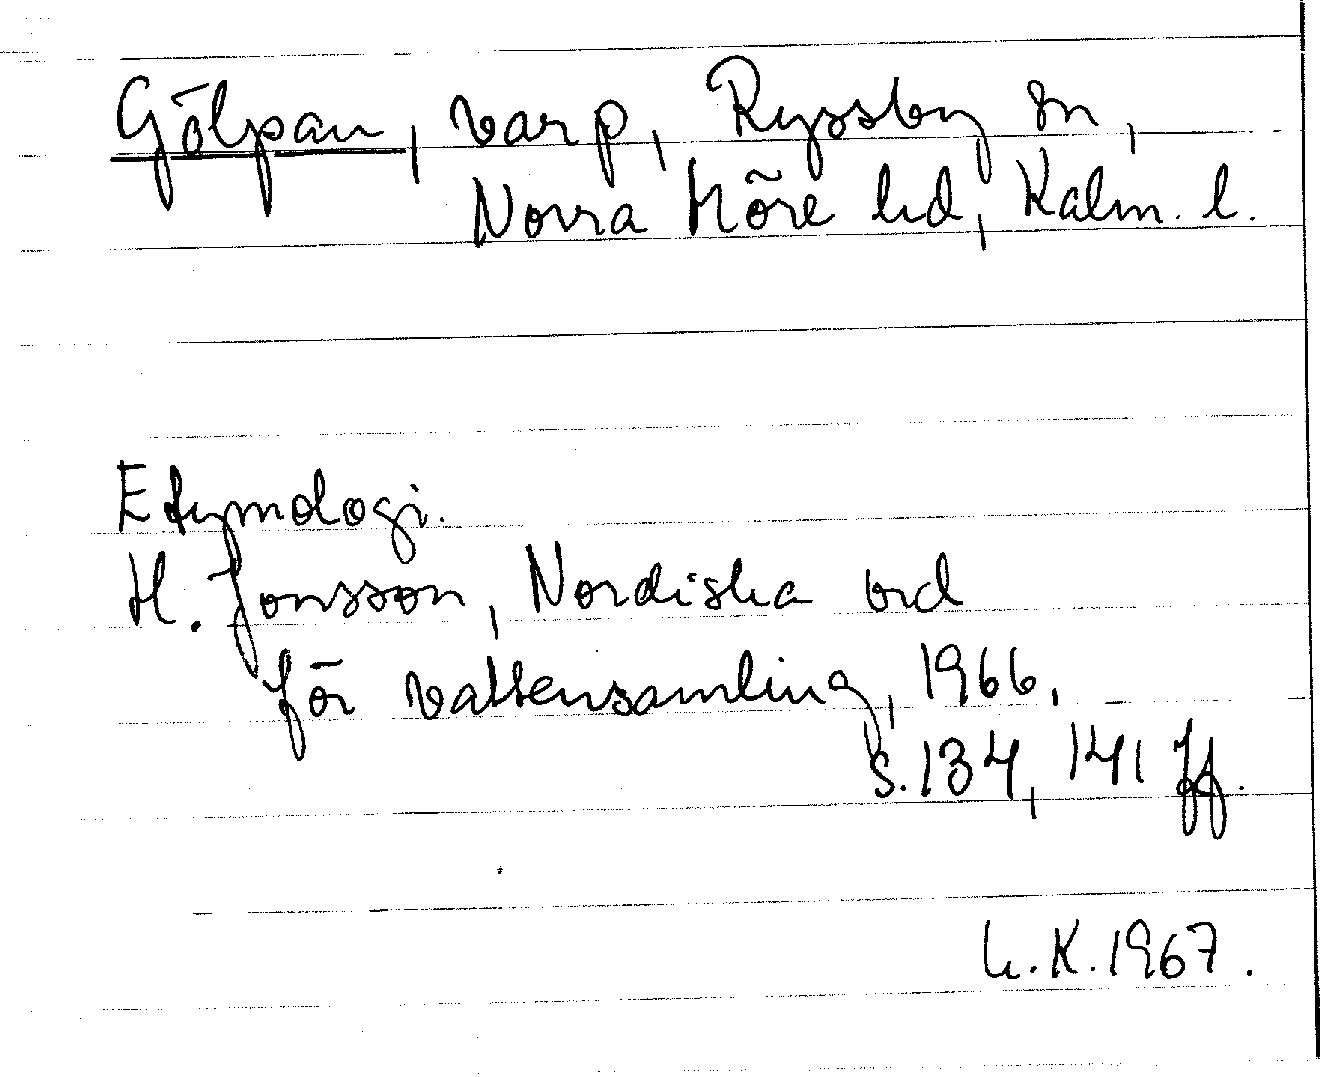 Gölpan, varp, Ryssby sn,
Norra Möre hd, Kalm. l.
Etymologi.
H. Jonsson, Nordiska ord
för vattensamling, 1966,
s. 134, 141 ff.
L.K. 1967.